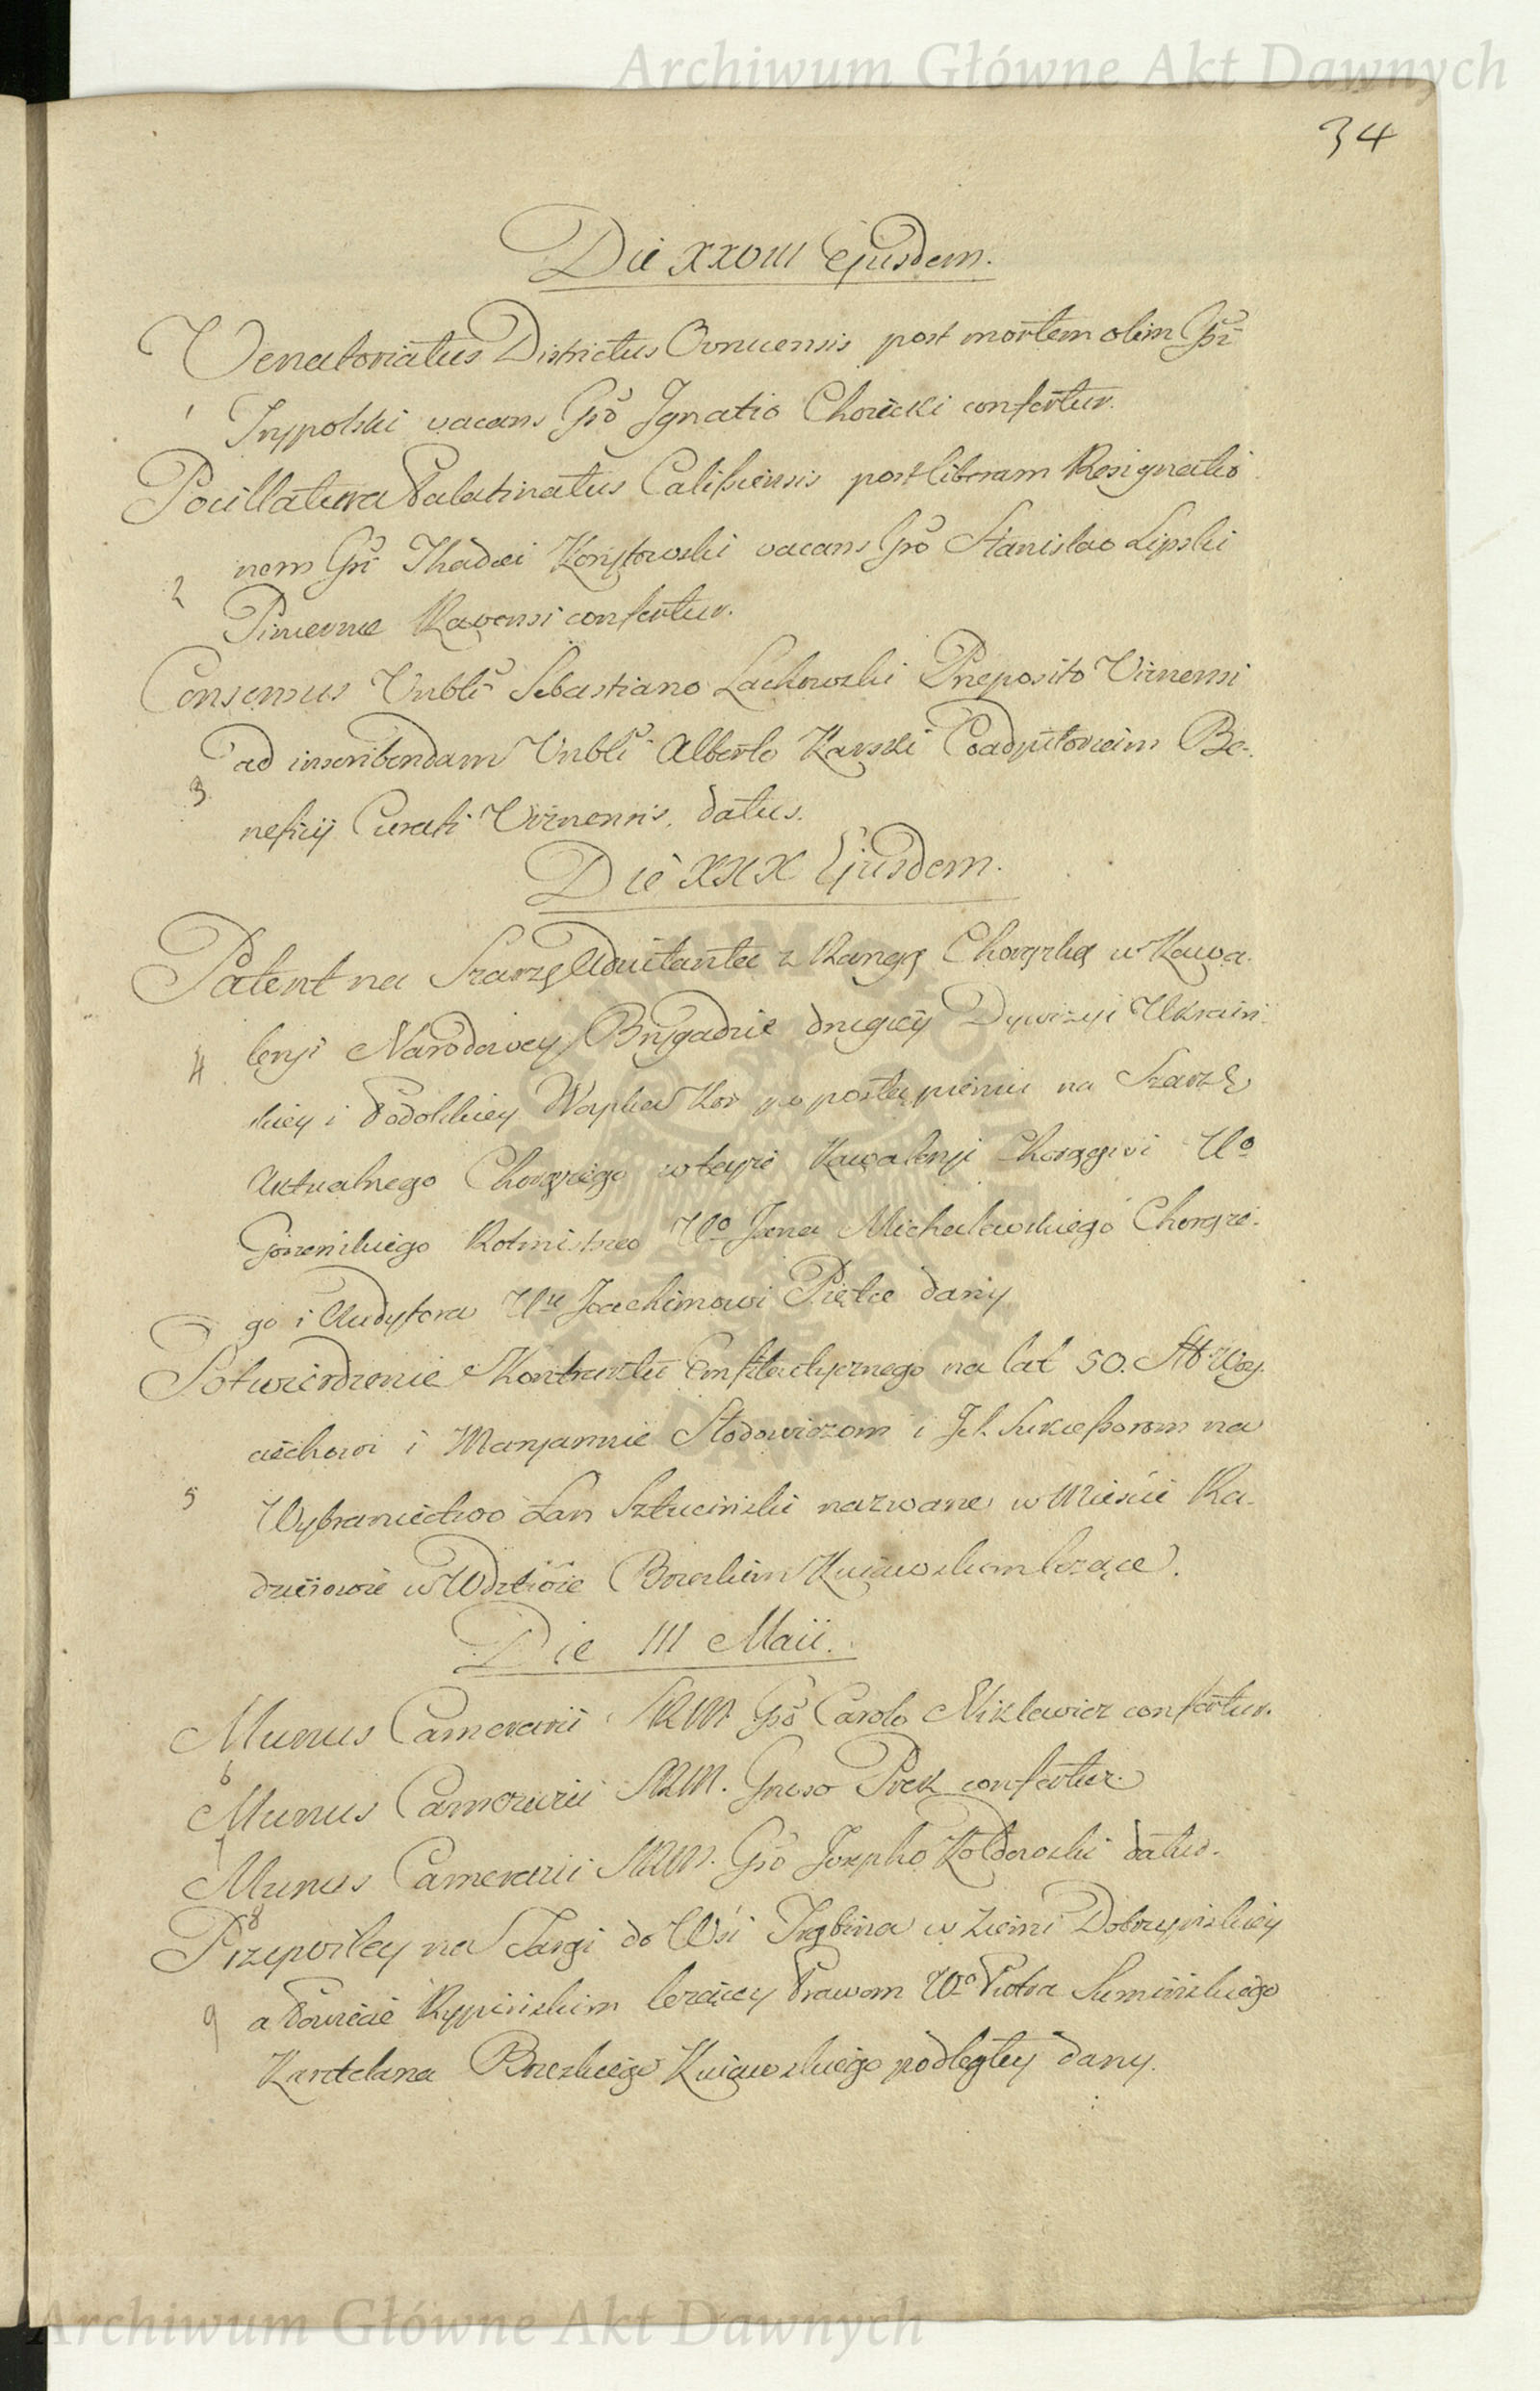 Archiwum Główne Akt Dawnych
34
Die XXVIII Ejusdem.
Venatoriatus Districtus Ovrucensis post mortem olim Gsi
1 Trypolski vacans Gso Ignatio Choiecki confertur.
Pocillatura Palatinatus Calissiensis post liberam Resignatio
nem Gsi Thadei vacans Gso Stanislao Lipski
2 Pincernae Ravensi confertur.
Consensus Vnbli Sebastiano Lachowski Praeposito
ad inscribendam Vnbli Alberto Karski Coadjutoriam Be-
3 neficij Curati datus.
Die XXX Ejusdem.
Patent na Szarzę Adiutanta z Rangą Chorążką w Kawa-
4 leryi Narodowey Brygadzie drugiey Dywizyi Ukrain-
skiey i Podolskiey po postąpieniu na Szarżę
Aktualnego Chorążego w teyże Kawaleryi Chorągwi Uo
Rotmistrza Uo Jana Michalowskiego Chorąże-
go i Audytora Joachimowi Piętce dany
Potwierdzenie Kontraktu Emfiteutycznego na lat 50. Woy-
ciechowi i Maryannie Słodowiczom i Ich Sukcessorom na
5 Wybraniectwo Łan nazwane w Mieście Ra-
dziejowie w Wdztwie Brzeskim Kujawskim leżące.
Die III Maii.
Munus Camerarii SRM. Gso Carolo Niklewicz confertur.
6
Munus Camerarii SRM. Gnoso Prek confertur.
7
Munus Camerarii SRM. Gso Josepho Kołdowski datur.
8
Przywiley na Targi do Wsi Trąbina w Ziemi Dobrzyńskiey
9 a Powiecie Rypińskim leżącey Prawom Wo Piotra Sumińskiego
Kasztelana Brzeskiego Kujawskiego podległey dany.
Archiwum Główne Akt Dawnych